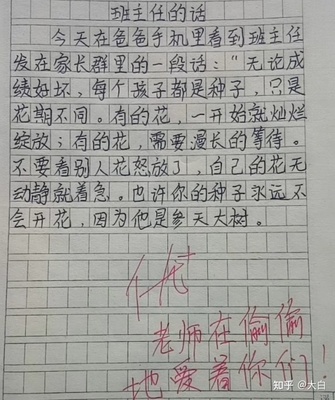 班主任的话
今天在爸爸手机里看到班主任
发在家长群里的一段话："无论成
绩好坏，每个孩子都是种子，只是
花期不同。有的花，一开始就灿烂
绽放；有的花，需要漫长的等待。
不要看别人花怒放了，自己的花无
动静就着急。也许你的种子永远不
会开花，因为他是参天大树。
优+
老师在偷偷
地爱着你们！
知乎 @大白